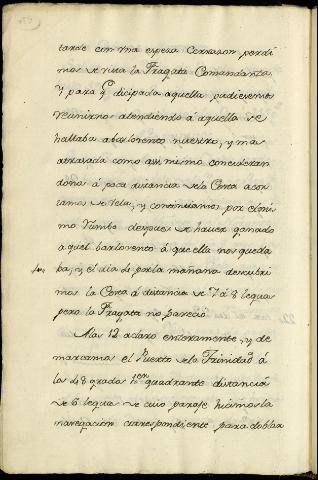 tarde con una espesa Cerrazon perdi
mos de vista la Fragata Comandanta
y para q.e dicipada aquella pudiesemos
reunirnos atendiendo á aquella se
hallaba abarlovento nuestro, y mas
atrasada como asi mismo
á poca distancia de la Costa acor
tamos de Vela, y continuamos por el mis
mo rumbo despues de haver ganado
aquel barlovento á que ella nos queda
ba, y el dia por la mañana descubri
mos la Costa á distancia de 7 á 8 leguas
pero la Fragata no pareció
Alas 12 aclaro enteramente, y de
marcamos el Puerto de la Trinidad á
los 48 grados quadrante distancia
de 6 leguas de cuio parage hicimos la
navegacion correspondiente para doblar